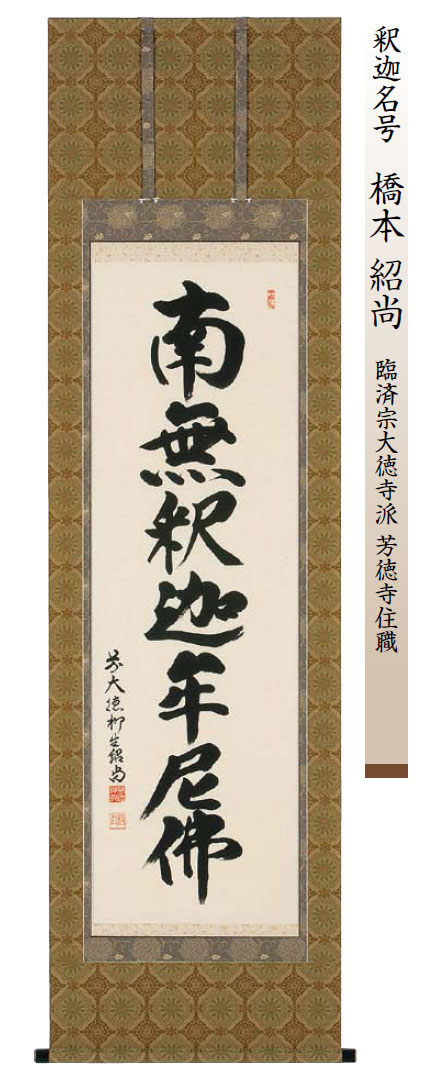 釈迦名号 橋本 紹尚 臨済宗大徳寺派 芳徳寺住職
南無釈迦牟尼佛
前大徳柳生紹尚